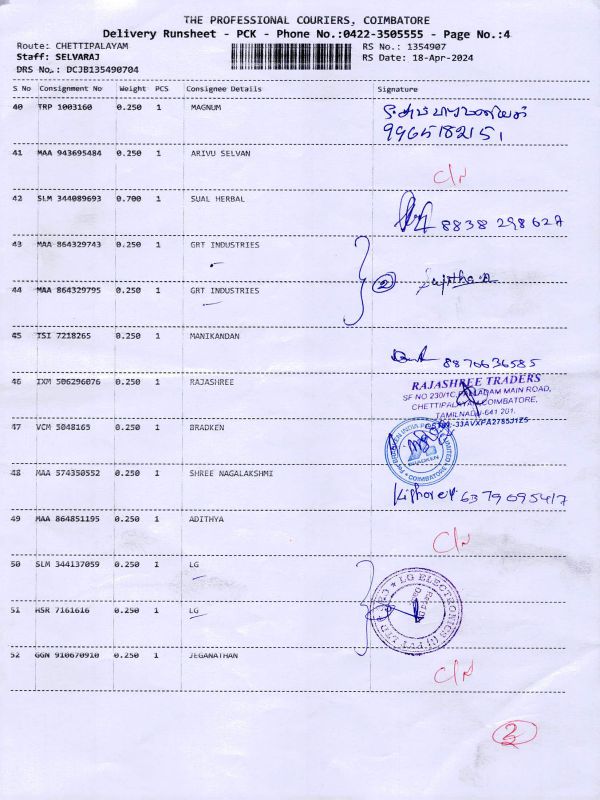 THE PROFESSIONAL COURIERS, COIMBATORE
Delivery Runsheet - PCK - Phone No.:0422-3505555 - Page No.:4
Route: CHETTIPALAYAM
RS No.: 1354907
Staff: SELVARAJ
RS Date: 18-Apr-2024
DRS No.: DCJB135490704
S No Consignment No Weight PCS Consignee Details Signature
40 TRP 1003160 0.250 1 MAGNUM
9965182151
41 MAA 943695484 0.250 1 ARIVU SELVAN
C/N
42 SLM 344089693 0.700 1 SUAL HERBAL
8838298627
43 MAA 864329743 0.250 1 GRT INDUSTRIES
2
44 MAA 864329795 0.250 1 GRT INDUSTRIES
45 TSI 7218265 0.250 1 MANIKANDAN
8870636585
46 IXM 506296076 0.250 1 RAJASHREE
RAJASHREE TRADERS
SF NO 230/1C, PALLADAM MAIN ROAD,
CHETTIPALAYAM, COIMBATORE,
TAMILNADU-641 201.
47 VCM 5048165 0.250 1 BRADKEN
BRADKEN
COIMBATORE
48 MAA 574350552 0.250 1 SHREE NAGALAKSHMI
6379095417
49 MAA 864851195 0.250 1 ADITHYA
C/N
50 SLM 344137059 0.250 1 LG
LG ELECTRONICS
51 HSR 7161616 0.250 1 LG
52 GGN 910670910 0.250 1 JEGANATHAN
C/N
2